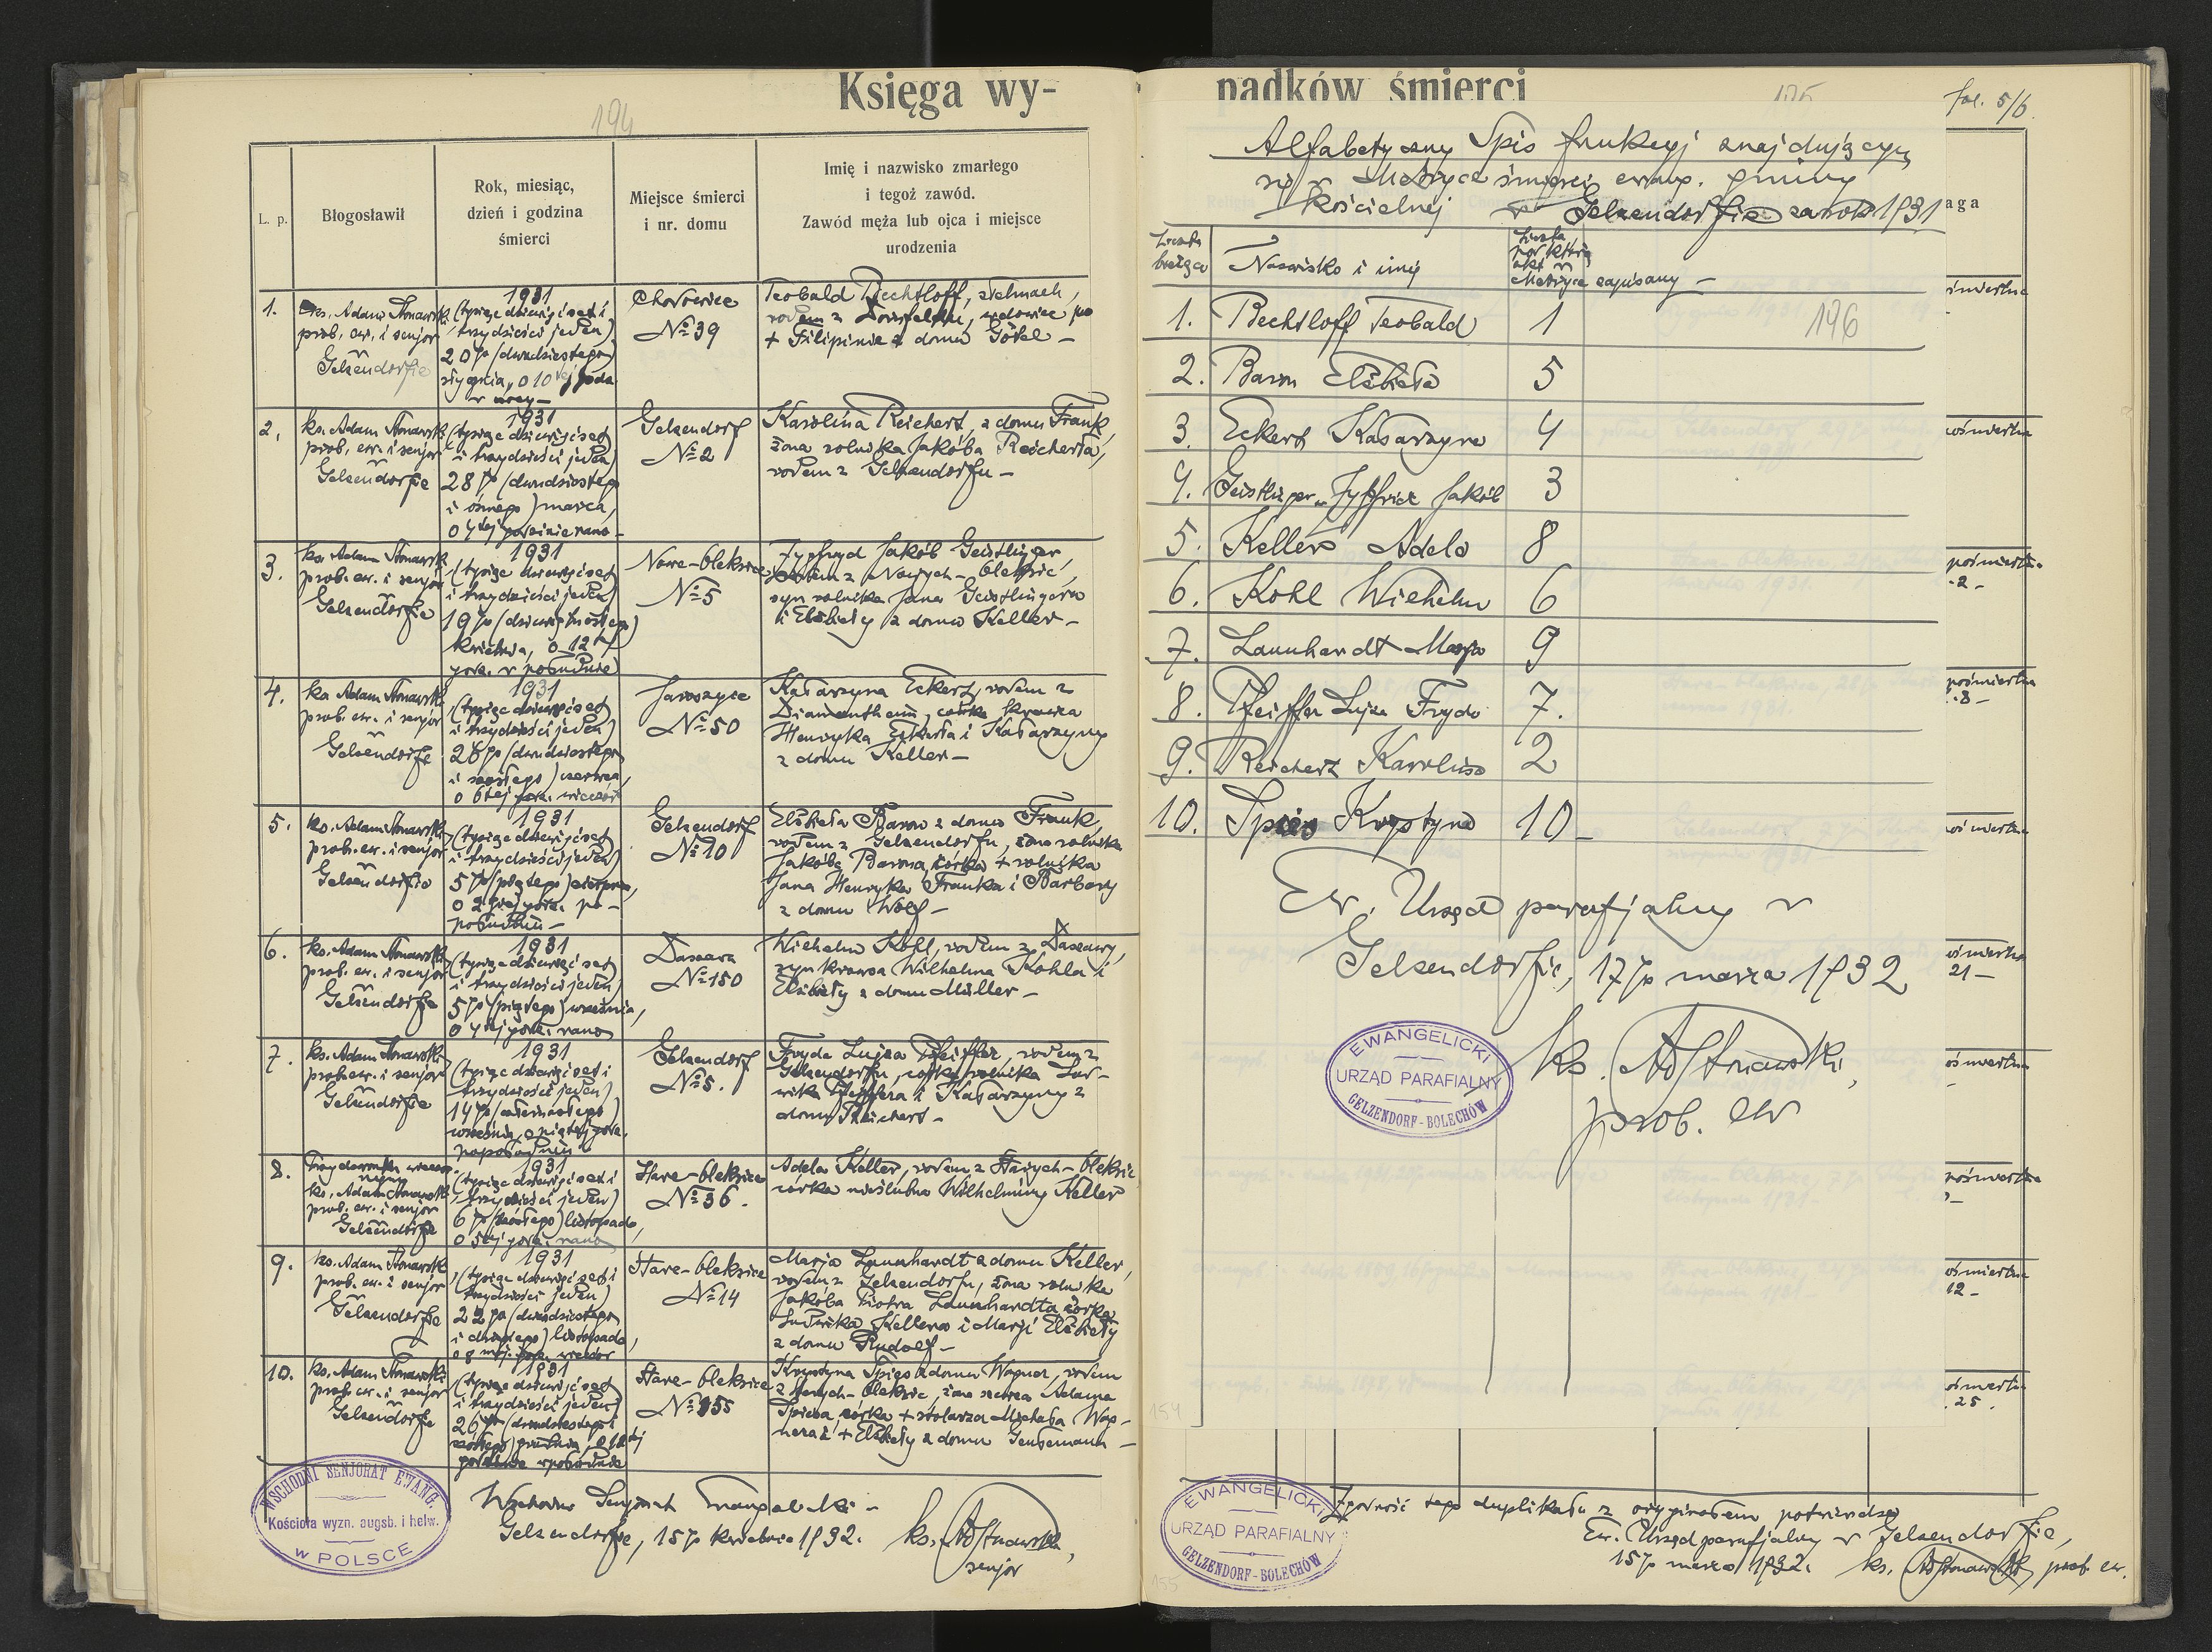 Księga wy-
194
L. p.
Błogosławił
Rok, miesiąc,
dzień i godzina
śmierci
Miejsce śmierci
i nr. domu
Imię i nazwisko zmarłego
i tegoż zawód.
Zawód męża lub ojca i miejsce
urodzenia
1.
prob. ew. i senjor
Gelsendorfie
1931
(tysiąc dziewięćset i
trzydzieści jeden)
20go (dwudziestego)
stycznia, o 10tej godz.
Chorowice
No 39
Teobald Bechtloff, stelmach,
rodem z owdowiec po
+ Filipinie z domu Götel –
2.
ks. Adam Stonawski
prob. ew. i senjor
Gelsendorfie
1931
(tysiąc dziewięćset
i trzydzieści jeden)
28go (dwudziestego
i ósmego) marca,
o 4tej godzinie rano –
Gelsendorf
No 2
Karolina Reichert, z domu Frank,
żona rolnika Jakóba Reicherta,
rodem z Gelsendorfu –
3.
ks. Adam Stonawski
prob. ew. i senjor
Gelsendorfie
1931
(tysiąc dziewięćset
i trzydzieści jeden)
19go (dziewiętnastego)
kwietnia, o 12tej
godz. w południe
Nowe-Oleksice
No 5
Zygfryd Jakób Geistlinger,
rodem z Nowych-Oleksic,
syn rolnika Jana Geistlingera
i Elżbiety z domu Keller –
4.
ks. Adam Stonawski
prob. ew. i senjor
Gelsendorfie
1931
(tysiąc dziewięćset
i trzydzieści jeden)
26go (dwudziestego
i szóstego) czerwca,
o 6tej godz. wieczór
Jaroszyce
No 50
Katarzyna Eckert, rodem z
Diamantheim, córka krawca
Henryka Eckerta i Katarzyny
z domu Keller –
5.
ks. Adam Stonawski
prob. ew. i senjor
Gelsendorfie
1931
(tysiąc dziewięćset
i trzydzieści jeden)
5go (piątego) sierpnia,
o 2giej godz. po –
południu –
Gelsendorf
No 10
Elżbieta Baron z domu Frank,
rodem z Gelsendorfu, żona rolnika
Jakóba Barona, córka + rolnika
Jana Henryka Franka i Barbary
z domu Wolf –
6.
ks. Adam Stonawski
prob. ew. i senjor
Gelsendorfie
1931
(tysiąc dziewięćset
i trzydzieści jeden)
5go (piątego) września,
o 4tej godz. rano
Daszawa
No 150
Wilhelm Kohl, rodem z Daszawy,
syn krawca Wilhelma Kohla i
Elżbiety z domu Müller –
7.
ks. Adam Stonawski
prob. ew. i senjor
Gelsendorfie
1931
(tysiąc dziewięćset i
trzydzieści jeden)
14go (czternastego)
września, o piątej godz.
popołudniu
Gelsendorf
No 5.
Fryda Lujza Pfeiffer, rodem z
Gelsendorfu, córka rolnika Lud-
wika Pfeiffera i Katarzyny z
domu Reichert –
8.
ks. Adam Stonawski
prob. ew. i senjor
Gelsendorfie
1931
(tysiąc dziewięćset i
trzydzieści jeden)
6go (szóstego) listopada,
o 5tej godz. rano
Stare-Oleksice
No 36.
Adela Keller, rodem z Starych-Oleksic
córka nieślubna Wilhelminy Keller
9.
ks. Adam Stonawski
prob. ew. i senjor
Gelsendorfie
1931
(tysiąc dziewięćset i
trzydzieści jeden)
22go (dwudziestego
i drugiego) listopada,
o 8mej godz. wieczór
Stare-Oleksice
No 14
Marja Launhardt z domu Keller,
rodem z Gelsendorfu, żona rolnika
Jakóba Piotra Launhardta, córka
Ludwika Kellera i Marji Elżbiety
z domu Rudolf –
10.
ks. Adam Stonawski
prob. ew. i senjor
Gelsendorfie
1931
(tysiąc dziewięćset
i trzydzieści jeden)
26go (dwudziestego i
szóstego) grudnia, o 12tej
godzinie w południe
Stare-Oleksice
No 155
Krystyna Spies z domu Wagner, rodem
z Starych-Oleksic, żona szewca Adama
Spiesa, córka + stolarza Michała Wag-
nera i + Elżbiety z domu Gensemann –
WSCHODNI SENJORAT EWANG.
Kościoła wyzn. augsb. i helw.
w POLSCE
Wschodni Senjorat Ewangelicki –
Gelsendorfie, 15go kwietnia 1932.
ks. AdStonawski,
senjor
padków śmierci
fol. 5/6.
Alfabetyczny Spis funkcyj znajdujących
się w Metryce śmierci ewang. gminy
kościelnej w Gelsendorfie za rok 1931
aga
Liczba
bieżąca
Nazwisko i imię
Liczba
pod którą
akt w
Metryce zapisany –
1. Bechtloff Teobald 1
196
2. Baron Elżbieta 5
3. Eckert Katarzyna 4
4. Geistlinger Zygfryd Jakób 3
5. Keller Adela 8
6. Kohl Wilhelm 6
7. Launhardt Marja 9
8. Pfeiffer Lujza Fryda 7.
9. Reichert Karolina 2
10. Spies Krystyna 10 –
Ew. Urząd parafjalny w
Gelsendorfie, 17go marca 1932
EWANGELICKI
URZĄD PARAFIALNY
GELZENDORF-BOLECHÓW
ks. AdStonawski,
prob. ew
154
155
EWANGELICKI
URZĄD PARAFIALNY
GELZENDORF-BOLECHÓW
Zgodność tego duplikatu z oryginałem potwierdza
Ew. Urząd parafjalny w Gelsendorfie,
15go marca 1932. ks. AdStonawski, prob. ew.